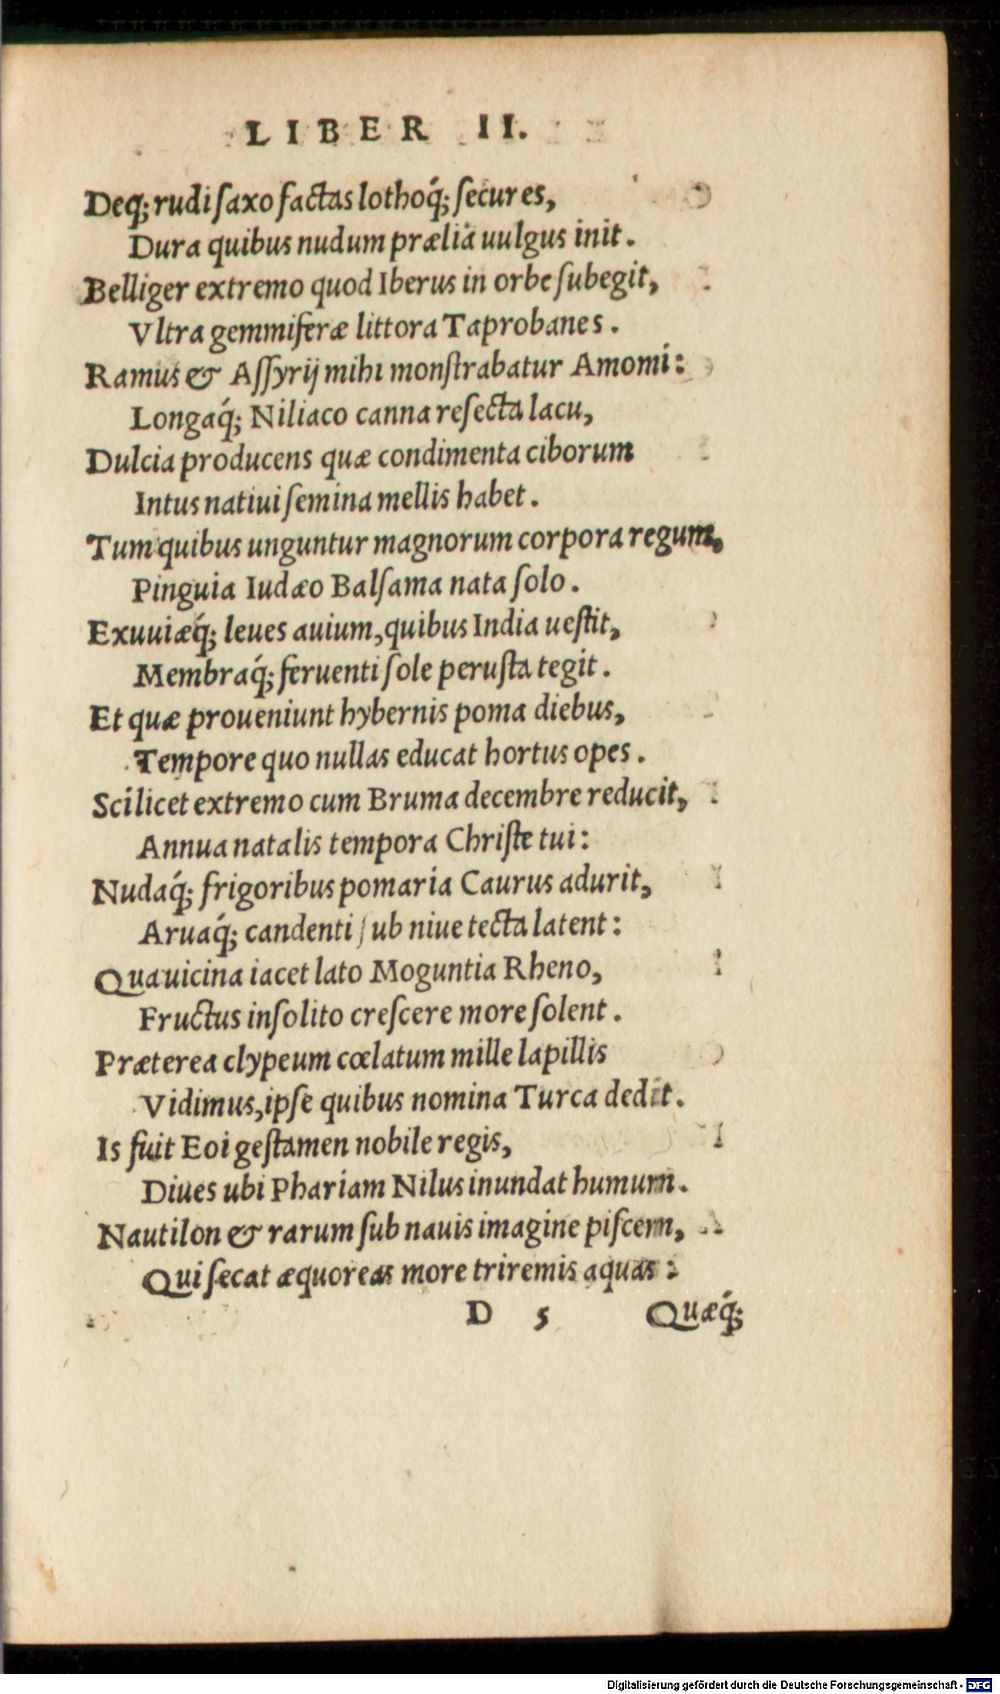 LIBER II.
Deq́; rudi ſaxo factas lothoq́; ſecures,
Dura quibus nudum prælia uulgus init.
Belliger extremo quod Iberus in orbe ſubegit,
Vltra gemmiferæ littora Taprobanes.
Ramus & Aſſyrij mihi monſtrabatur Amomi:
Longaq́; Niliaco canna reſecta lacu,
Dulcia producens quæ condimenta ciborum
Intus natiui ſemina mellis habet.
Tum quibus unguntur magnorum corpora regum,
Pinguia Iudæo Balſama nata ſolo.
Exuuiæq́; leues auium, quibus India ueſtit,
Membraq́; feruenti ſole peruſta tegit.
Et quæ proueniunt hybernis poma diebus,
Tempore quo nullas educat hortus opes.
Scilicet extremo cum Bruma decembre reducit,
Annua natalis tempora Chriſte tui:
Nudaq́; frigoribus pomaria Caurus adurit,
Aruaq́; candenti ſub niue tecta latent:
Qua uicina iacet lato Moguntia Rheno,
Fructus inſolito creſcere more ſolent.
Præterea clypeum cœlatum mille lapillis
Vidimus, ipſe quibus nomina Turca dedit.
Is fuit Eoi geſtamen nobile regis,
Diues ubi Phariam Nilus inundat humum.
Nautilon & rarum ſub nauis imagine piſcem,
Qui ſecat æquoreas more triremis aquas:
D 5 Quæq́;
Digitalisierung gefördert durch die Deutsche Forschungsgemeinschaft - DFG